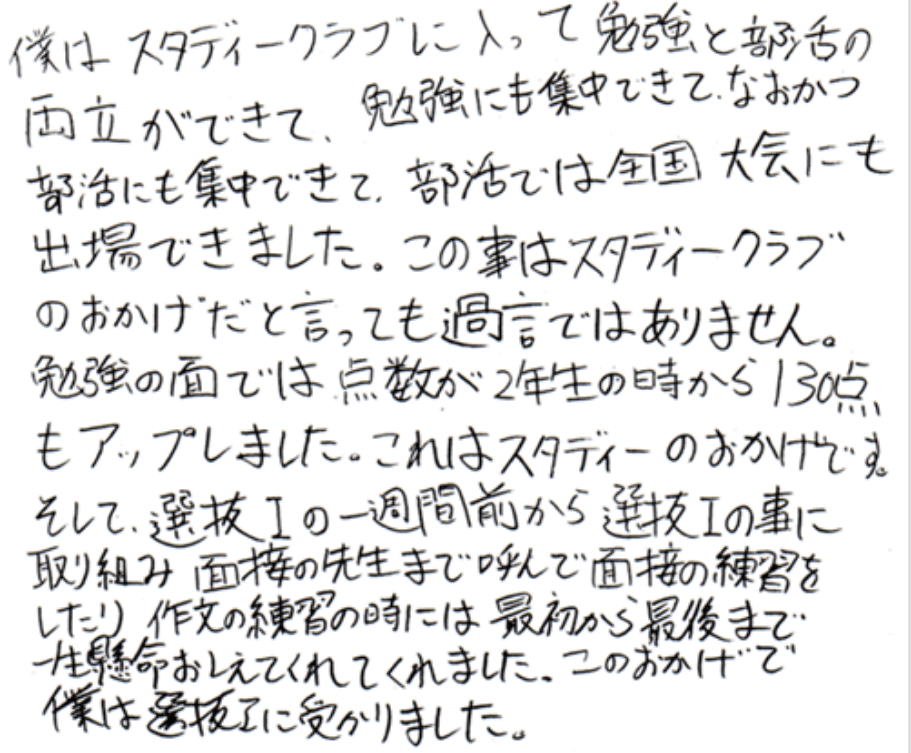 僕はスタディークラブに入って勉強と部活の
両立ができて、勉強にも集中できて、なおかつ
部活にも集中できて、部活では全国大会にも
出場できました。この事はスタディークラブ
のおかげだと言っても過言ではありません。
勉強の面では点数が2年生の時から130点
もアップしました。これはスタディーのおかげです。
そして、選抜Iの一週間前から選抜Iの事に
取り組み面接の先生まで呼んで面接の練習を
したり作文の練習の時には最初から最後まで
一生懸命おしえてくれてくれました。このおかげで
僕は選抜Iに受かりました。